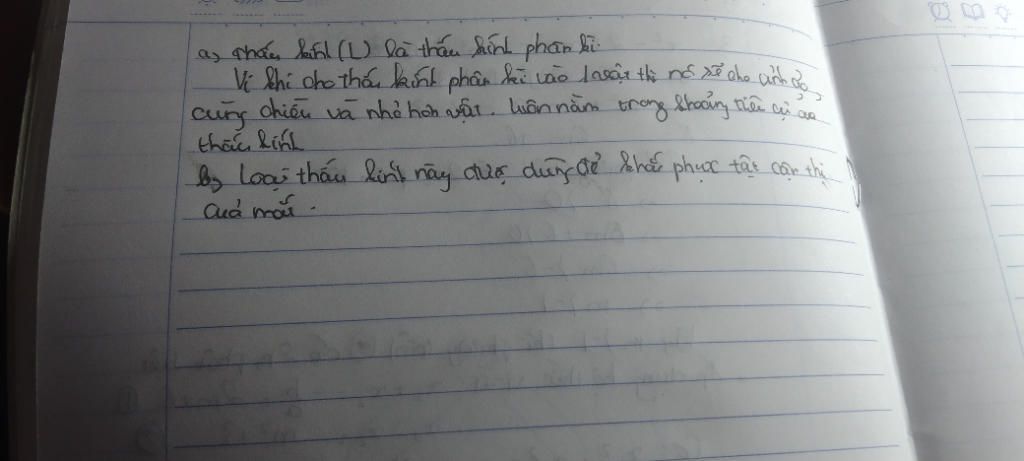 a, Thấu kính (L) là thấu kính phân kì.
Vì khi cho thấu kính phân kì vào 1 vật thì nó sẽ cho ảnh ảo,
cùng chiều và nhỏ hơn vật. luôn nằm trong khoảng tiêu cự của
thấu kính
b, Loại thấu kính này được dùng để khắc phục tật cận thị
của mắt.